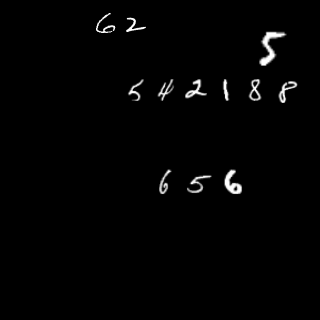 62
5
542188
656